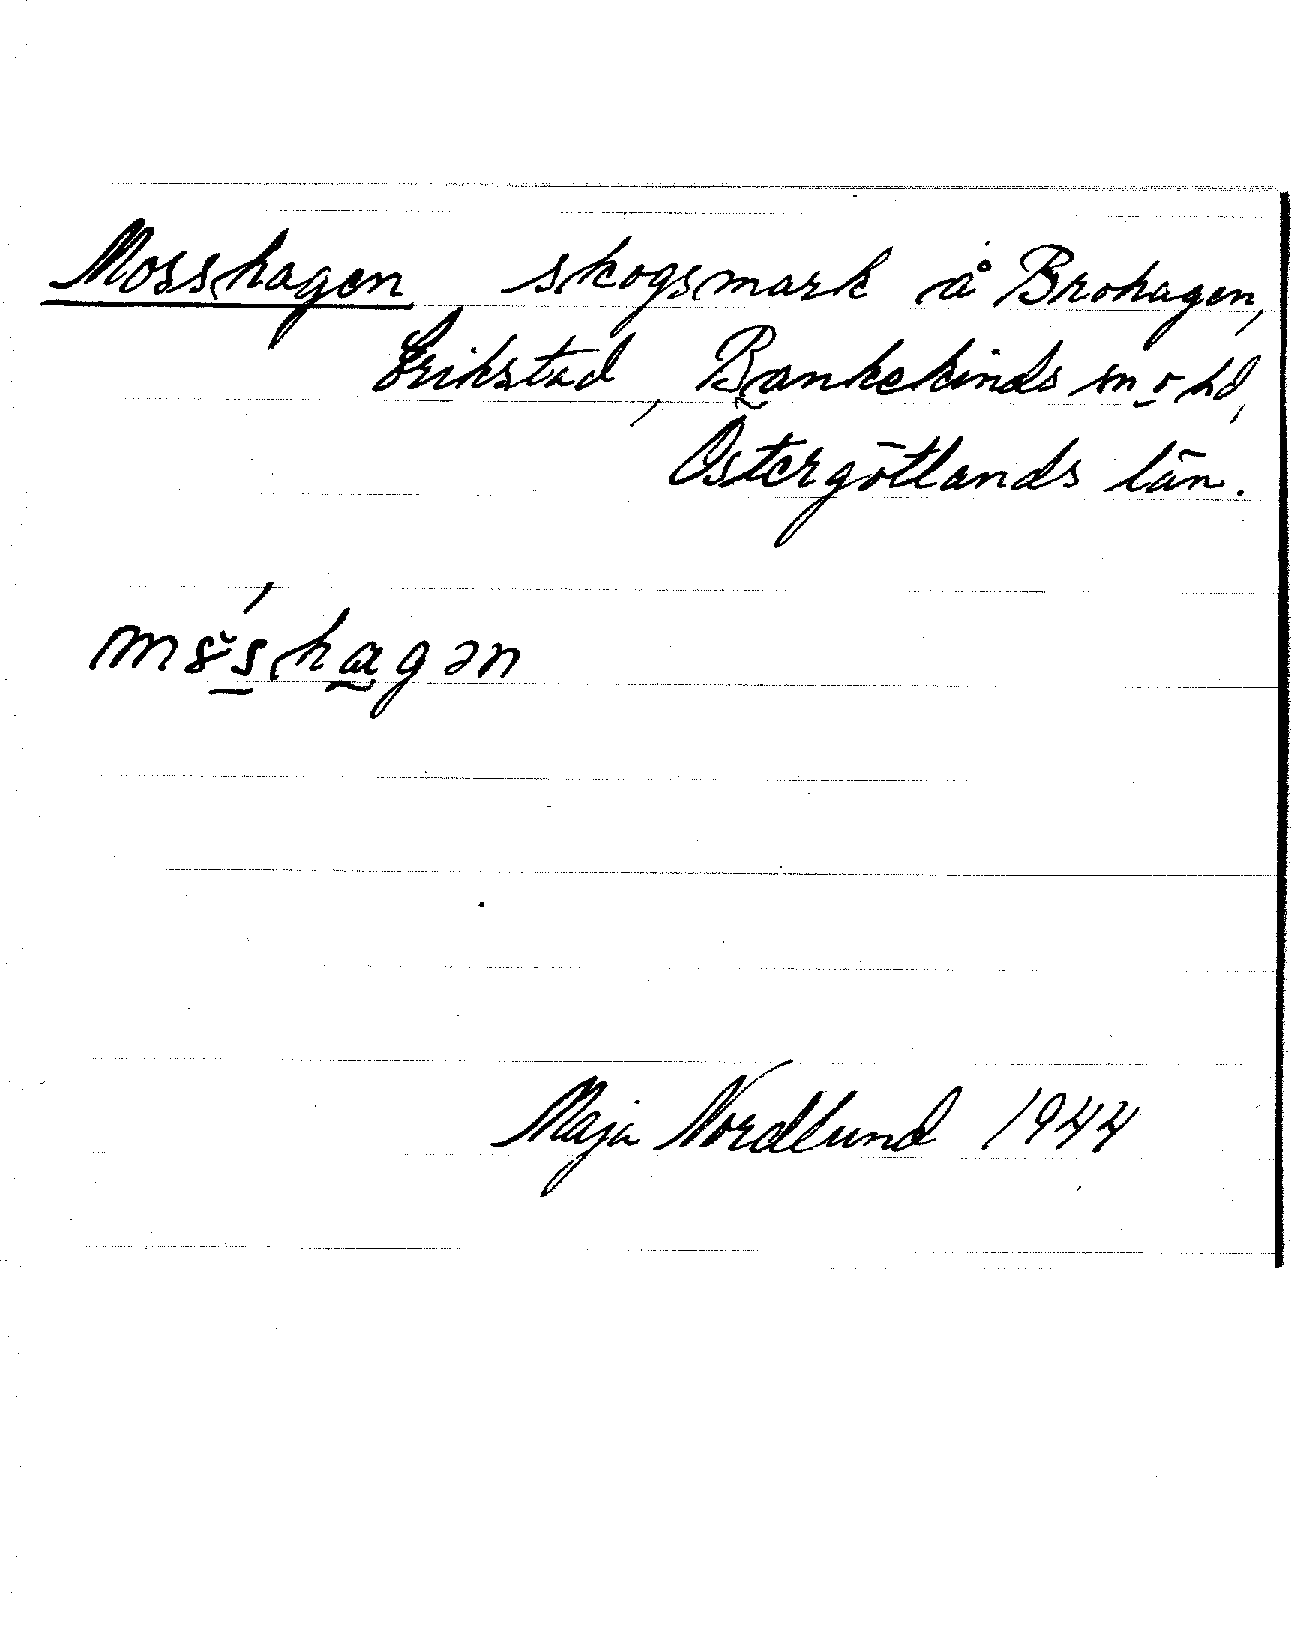 Mosshagen skogsmark å Brohagen,
Erikstad, Bankekinds sn o hd,
Östergötlands län.
Maja Nordlund 1944